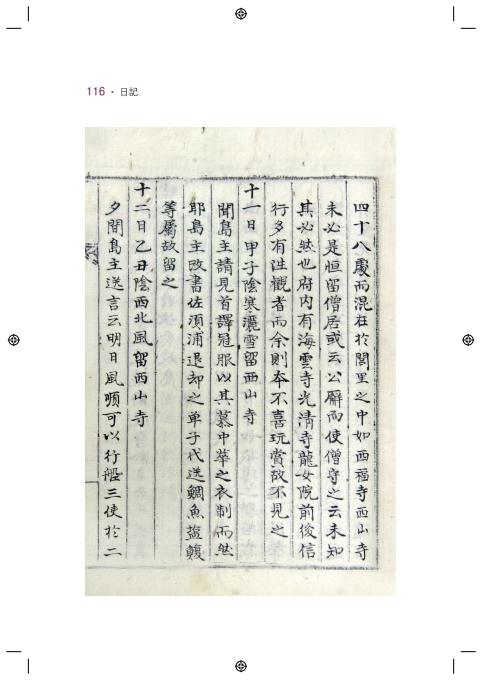 116 · 日記
四十八處而混在於閭里之中如西福寺西山寺
未必是恒留僧居或云公廨而使僧守之云未知
其必然也府內有海雲寺光清寺龍女院前後信
行多有往觀者而余則本不喜玩賞故不見之
十一日甲子陰寒灑雪留西山寺
聞島主請見首譯冠服以其慕中華之衣制而然
耶島主改書佐須浦退却之單子代送鯛魚塩鰒
等屬故留之
十二日乙丑陰西北風留西山寺
夕間島主送言云明日風順可以行船三使於二